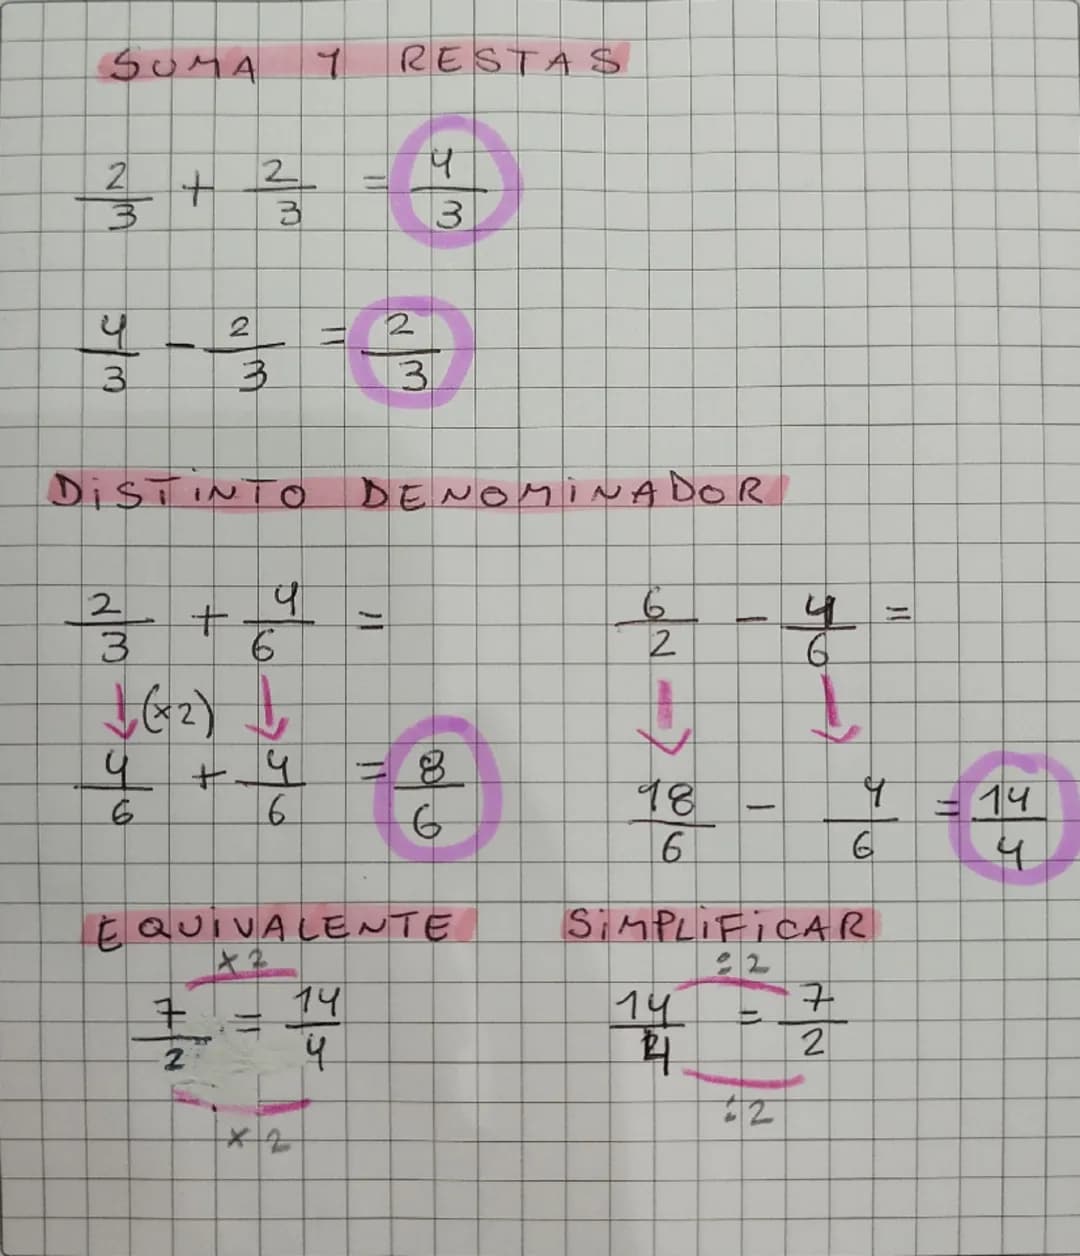 SUMA Y RESTAS
2/3 + 2/3 = 4/3
4/3 - 2/3 = 2/3
DISTINTO DENOMINADOR
2/3 + 4/6 =
(x2)
4/6 + 4/6 = 8/6
6/2 - 4/6 =
18/6 - 4/6 = 14/4
EQUIVALENTE
x2
7/2 = 14/4
x2
SIMPLIFICAR
:2
14/4 = 7/2
:2